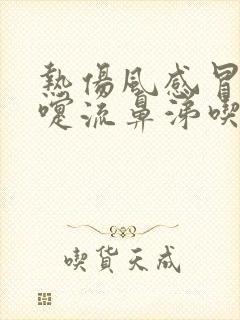 熱傷風感冒
嚏流鼻涕喫
喫貨天成